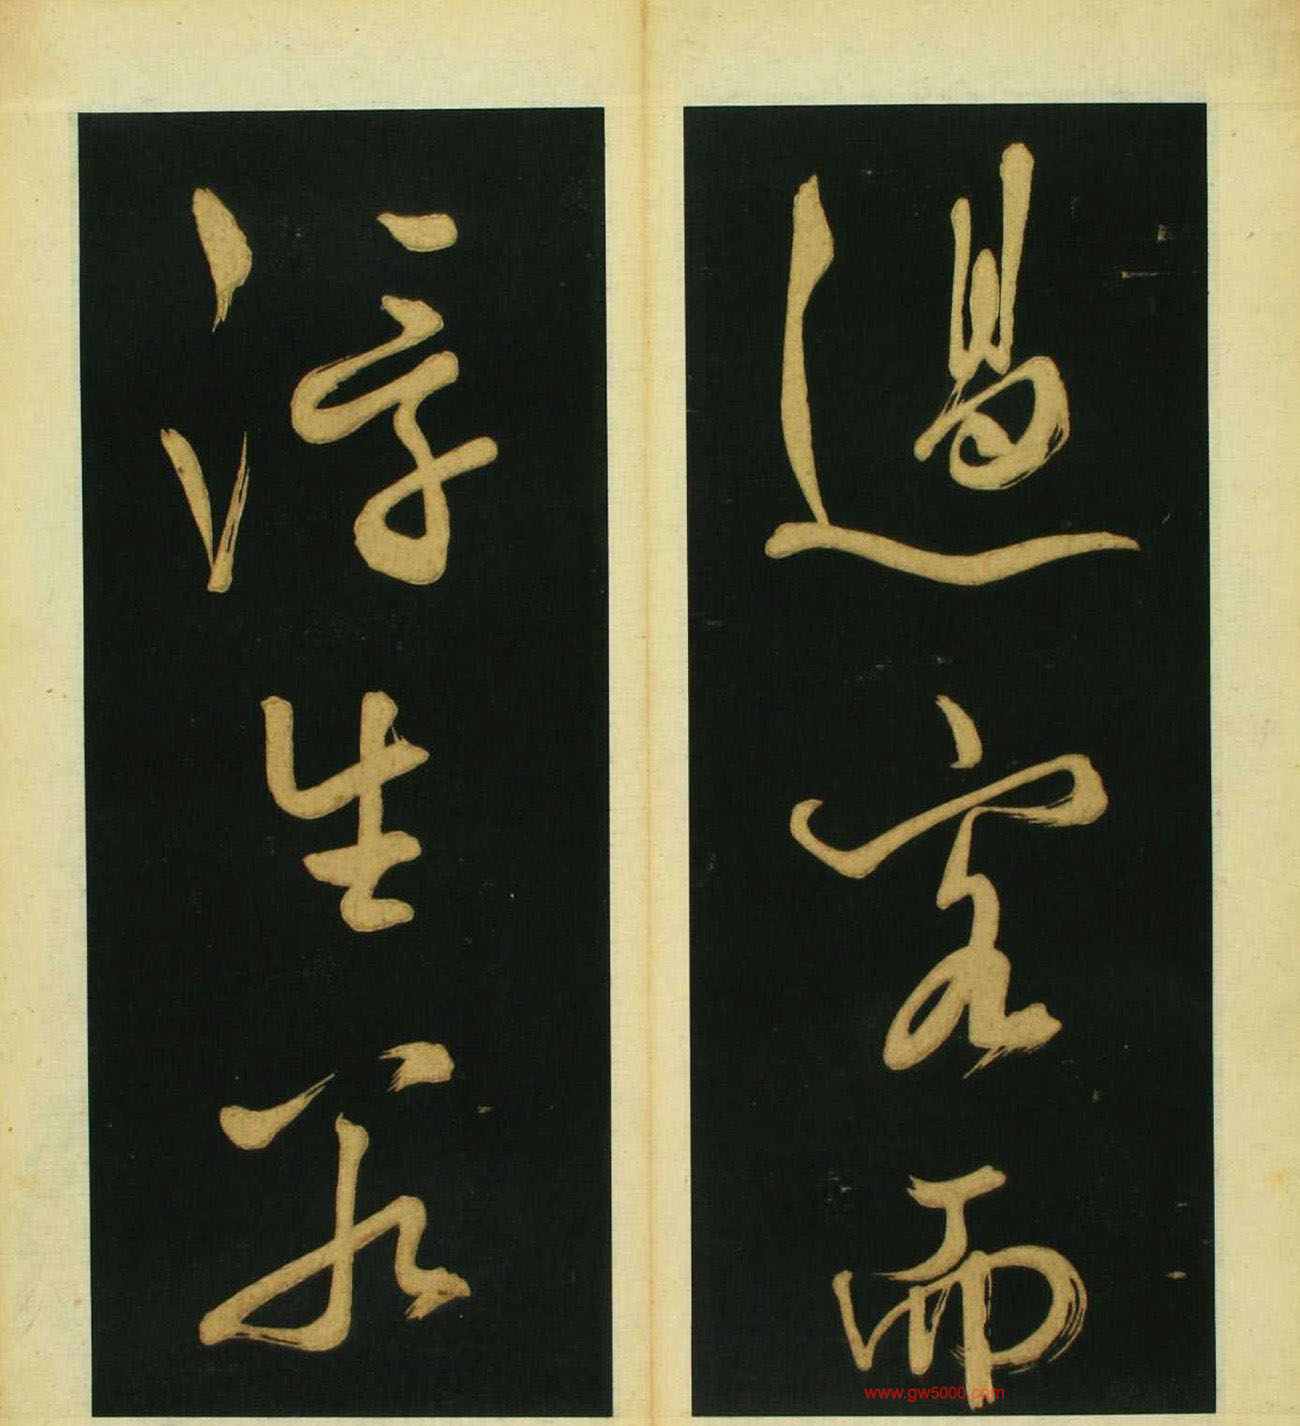 過客而
浮生若
www.gw5000.com